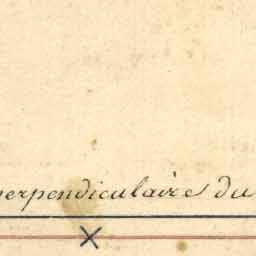 perpendiculaire du